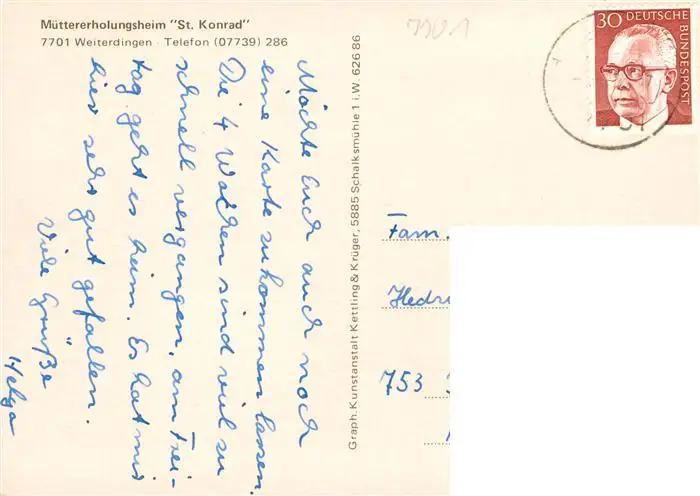 Müttererholungsheim "St. Konrad"
7701 Weiterdingen · Telefon (07739) 286
7701
30 DEUTSCHE BUNDESPOST
Möchte Euch auch noch
eine Karte zukommen lassen.
Die 4 Wochen sind viel zu
schnell vergangen, am Frei-
tag geht es heim. Es hat mir
hier sehr gut gefallen.
Viele Grüße
Helga
Graph. Kunstanstalt Kettling & Krüger, 5885 Schalksmühle 1 i.W. 626 86
Fam.
753